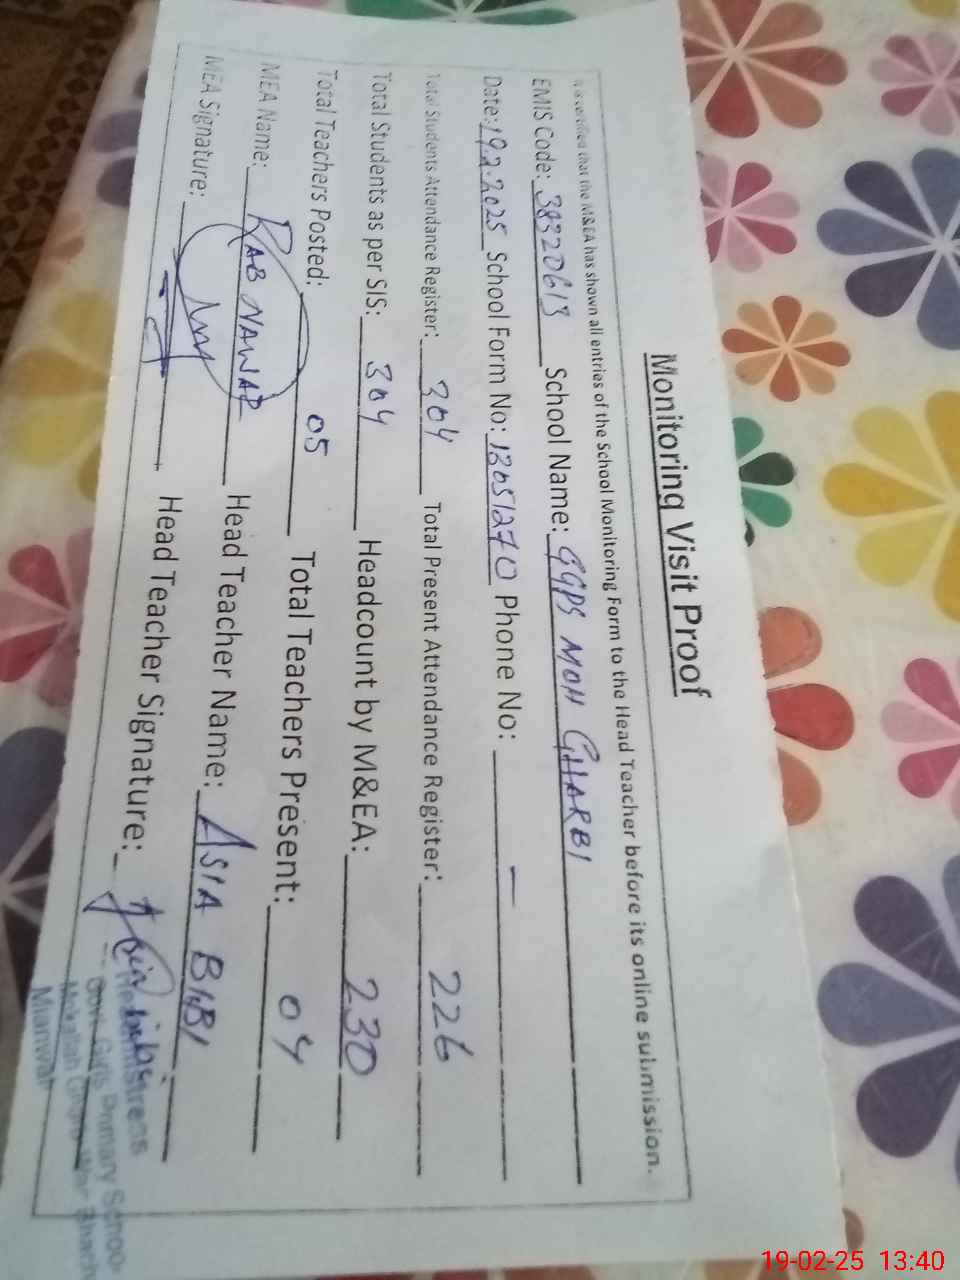 Monitoring Visit Proof
It is certified that the M&EA has shown all entries of the School Monitoring Form to the Head Teacher before its online submission.
EMIS Code: 38320613 School Name: GGPS MOH GHARBI
Date: 19.2.2025 School Form No: 13051270 Phone No: —
Total Students Attendance Register: 304 Total Present Attendance Register: 226
Total Students as per SIS: 304 Headcount by M&EA: 230
Total Teachers Posted: 05 Total Teachers Present: 04
MEA Name: RAB NAWAZ Head Teacher Name: ASIA BIBI
MEA Signature: Head Teacher Signature:
Headmistress
Govt. Girls Primary School
Mohallah
Mianwali
19-02-25 13:40